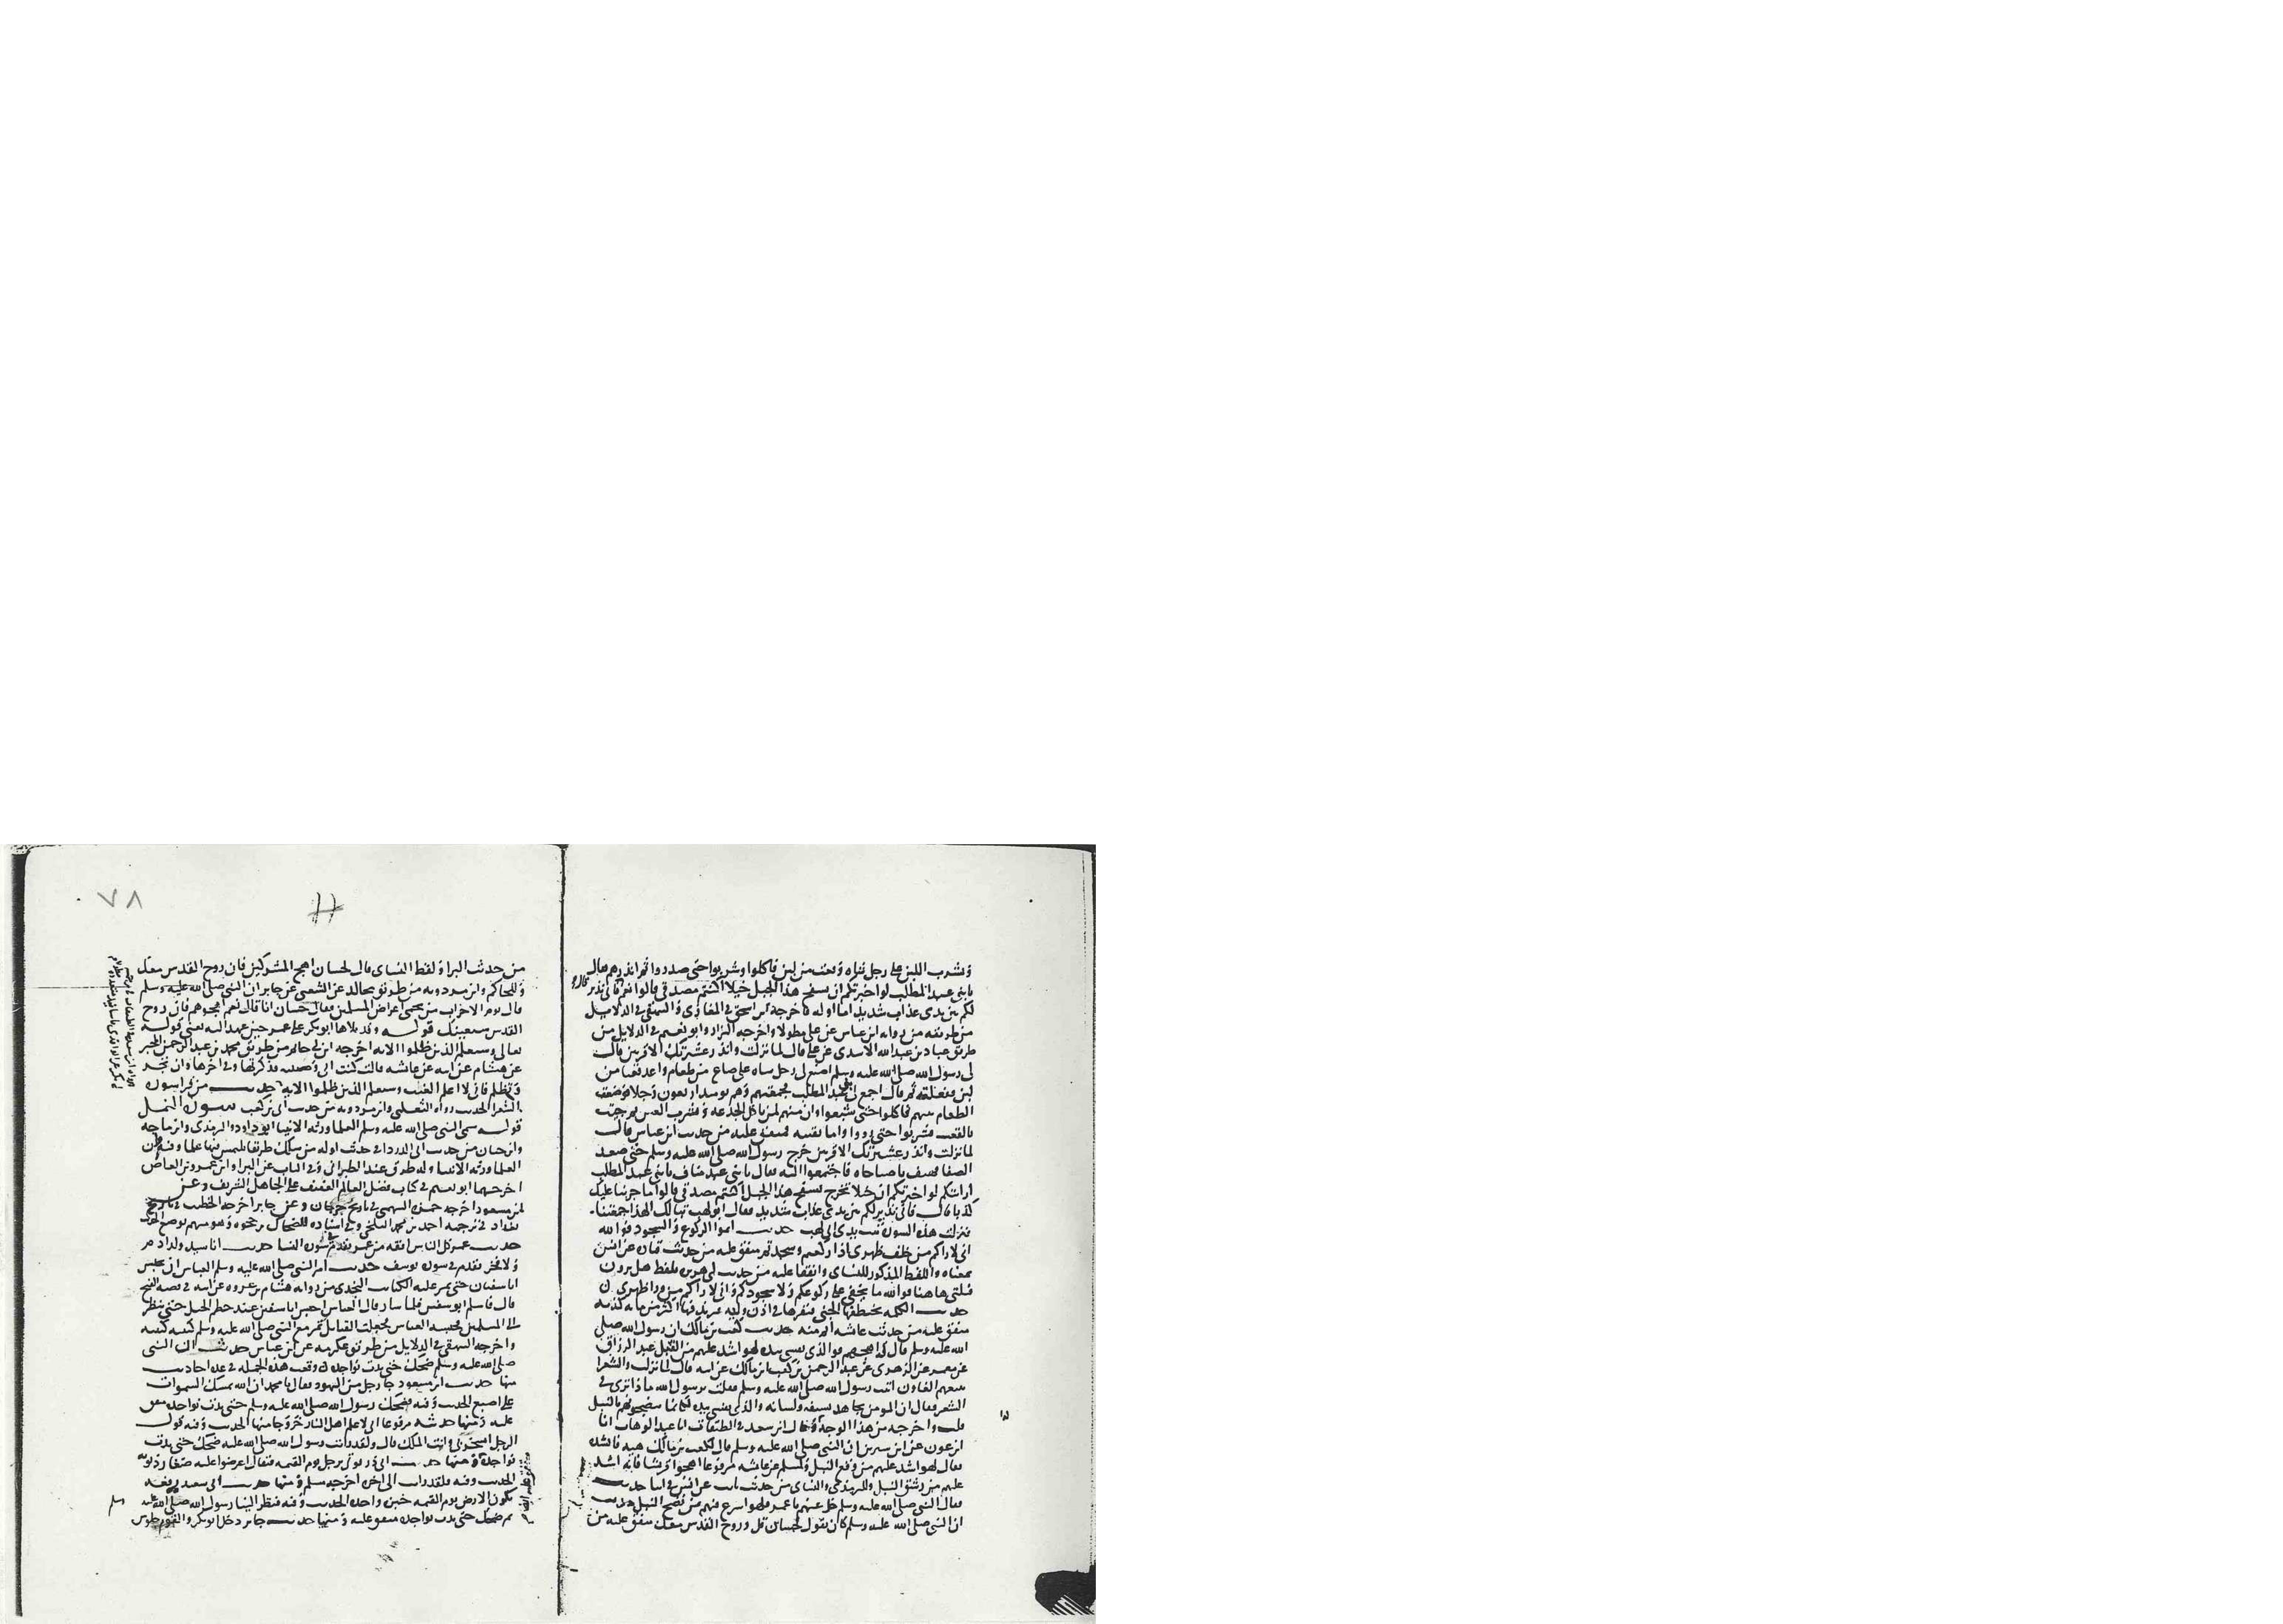 وشرب اللبن على رجل شاه وقعب من لبن فاكلوا وشربوا حتى صدروا ثم انذرهم فقال
يا بنى عبد المطلب لو اخبرتكم ان بسفح هذا الجبل خيلا اكنتم مصدقى قالوا نعم قال فانى نذير
لكم بين يدى عذاب شديد اما اوله فاخرجه ابن اسحق فى المغازى والبيهقى فى الدلايل
من طريقه من روايه ابن عباس عن على مطولا واخرجه البزار وابو نعيم فى الدلايل من
طريق عباد بن عبد الله الاسدى عن على قال لما نزلت وانذر عشيرتك الاقربين قال
لى رسول الله صلى الله عليه وسلم اصنع لى رجل شاه على صاع من طعام واعد قعبا من
لبن ففعلته ثم قال اجمع لى بنى عبد المطلب فجمعتهم وهم يوميذ اربعون رجلا فوضعت
الطعام بينهم فاكلوا حتى شبعوا وان منهم لمن ياكل الجذعه ويشرب العس ثم جيت
بالقعب فشربوا حتى رووا واما بقيته فمتفق عليه من حديث ابن عباس قال
لما نزلت وانذر عشيرتك الاقربين خرج رسول الله صلى الله عليه وسلم حتى صعد
الصفا فهتف يا صباحاه فاجتمعوا اليه فقال يا بنى عبد مناف يا بنى عبد المطلب
ارايتكم لو اخبرتكم ان خيلا تخرج بسفح هذا الجبل اكنتم مصدقى قالوا ما جربنا عليك
كذبا قال فانى نذير لكم بين يدى عذاب شديد فقال ابو لهب تبا لك الهذا جمعتنا
فنزلت هذه السوره تبت يدى ابى لهب حديث اتموا الركوع والسجود فوالله
انى لاراكم من خلف ظهرى اذا ركعتم وسجدتم متفق عليه من حديث قتاده عن انس
بمعناه واللفظ المذكور للنساى واتفقا عليه من حديث ابى هريره بلفظ هل ترون
قبلتى هاهنا فوالله ما يخفى على ركوعكم ولا سجودكم وانى لاراكم من ورا ظهرى
حديث الكلمه يخطفها الجنى فيقرها فى اذن وليه فيزيد فيها اكثر من مايه كذبه
متفق عليه من حديث عائشه حديث كعب بن مالك ان رسول الله صلى
الله عليه وسلم قال له اهجهم فوالذى نفسى بيده لهو اشد عليهم من النبل عبد الرزاق
عن معمر عن الزهرى عن عبد الرحمن بن كعب بن مالك عن ابيه قال لما نزلت والشعرا
يتبعهم الغاون اتيت رسول الله صلى الله عليه وسلم فقلت يرسول الله ما ذا ترى فى
الشعر فقال ان المومن يجاهد بسيفه ولسانه والذى نفسى بيده لكانما تنضحونهم بالنبل
قلت واخرجه من هذا الوجه وقال ابن سعد فى الطبقات انا عبد الوهاب انا
ابن عون عن ابن سيرين ان النبى صلى الله عليه وسلم قال لكعب بن مالك هيه فانشده
فقال لهو اشد عليهم من وقع النبل ولمسلم عن عائشه مرفوعا اهجوا قريشا فانه اشد
عليهم من رشق النبل وللترمذى والنساى من حديث ثابت عن انس فى اثنا حديث
فقال النبى صلى الله عليه وسلم خل عنه يا عمر فلهو اسرع فيهم من نضح النبل حديث
ان النبى صلى الله عليه وسلم كان يقول لحسان قل وروح القدس معك متفق عليه من
٧٨
من حديث البرا ولفظ النساى قال لحسان اهج المشركين فان روح القدس معك
وللحاكم وابن مردويه من طريق مجالد عن الشعبى عن جابر ان النبى صلى الله عليه وسلم
قال يوم الاحزاب من يحمى اعراض المسلمين فقال حسان انا قال نعم اهجوهم فان روح
القدس سيعينك قوله وقد تلاها ابو بكر على عمر حين عهد اليه يعنى قوله
تعالى وسيعلم الذين ظلموا الايه اخرجه ابن ابى حاتم من طريق محمد بن عبد الرحمن المجبر
عن هشام عن ابيه عن عائشه قالت كتب ابى وصيته فذكرتها وفى اخرها وان يجر
ويظلم فانى لا اعلم الغيب وسيعلم الذين ظلموا الايه حديث من قرا سوره
الشعرا الحديث رواه الثعلبى وابن مردويه من حديث ابى بن كعب سوره النمل
قوله سمى النبى صلى الله عليه وسلم العلما ورثه الانبيا ابو داود والترمذى وابن ماجه
وابن حبان من حديث ابى الدردا فى حديث اوله من سلك طريقا يلتمس فيها علما وفيه وان
العلما ورثه الانبيا وله طرق عند الطبرانى وفى الباب عن البرا وابن عمرو بن العاص
اخرجهما ابو نعيم فى كتاب فضل العالم العفيف على الجاهل الشريف وعن
ابن مسعود اخرجه حمزه السهمى فى تاريخ جرجان وعن جابر اخرجه الخطيب فى تاريخ
بغداد فى ترجمه احمد بن محمد البلخى وفى اسناده الضحاك بن حجوه وهو متهم بوضع الحديث
حديث عمر كل الناس افقه من عمر تقدم فى سوره النسا حديث انا سيد ولد ادم
ولا فخر تقدم فى سوره يوسف حديث امر النبى صلى الله عليه وسلم العباس ان يحبس
ابا سفيان حتى تمر عليه الكتائب البخارى من روايه هشام بن عروه عن ابيه فى قصه الفتح
قال فاسلم ابو سفين فلما سار قال للعباس احبس ابا سفين عند حطم الخيل حتى ينظر
الى المسلمين فحبسه العباس فجعلت القبايل تمر مع النبى صلى الله عليه وسلم كتيبه كتيبه
واخرجه البيهقى فى الدلايل من طريق عكرمه عن ابن عباس حديث ان النبى
صلى الله عليه وسلم ضحك حتى بدت نواجذه وقعت هذه الجمله فى عده احاديث
منها حديث ابن مسعود جا رجل من اليهود فقال يا محمد ان الله يمسك السموات
على اصبع الحديث وفيه فضحك رسول الله صلى الله عليه وسلم حتى بدت نواجذه متفق
عليه ومنها حديثه مرفوعا انى لاعلم اهل النار خروجا منها الحديث وفيه قول
الرجل اتسخر بى وانت الملك قال ولقد رايت رسول الله صلى الله عليه ضحك حتى بدت
نواجذه ومنها حديث ابى ذر يوتى برجل يوم القيمه فيقال اعرضوا عليه صغار ذنوبه
الحديث وفيه فلقد رايت الى اخره اخرجه مسلم ومنها حديث ابى سعيد يرفعه
تكون الارض يوم القيمه خبزه واحده الحديث وفيه فنظر الينا رسول الله صلى الله عليه وسلم
ثم ضحك حتى بدت نواجذه متفق عليه ومنها حديث جابر دخل ابو بكر والقوم جلوس